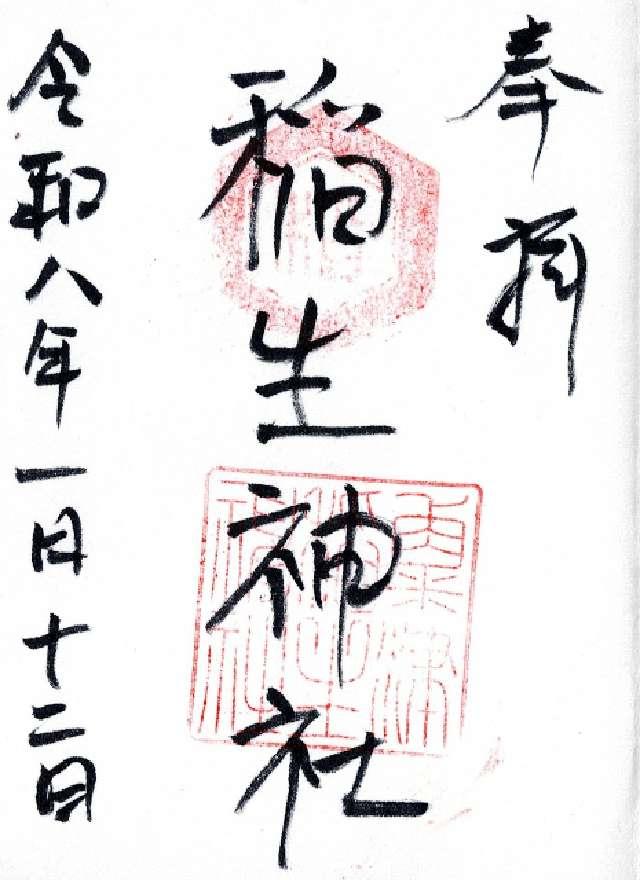 奉拝
稲生神社
令和八年一月十二日